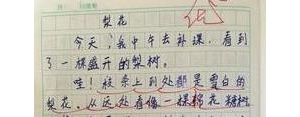 梨花
今天，我中午去补课，看到
了一棵盛开的梨树。
哇！枝条上到处都是雪白的
梨花，从远处看像一棵棉花糖树